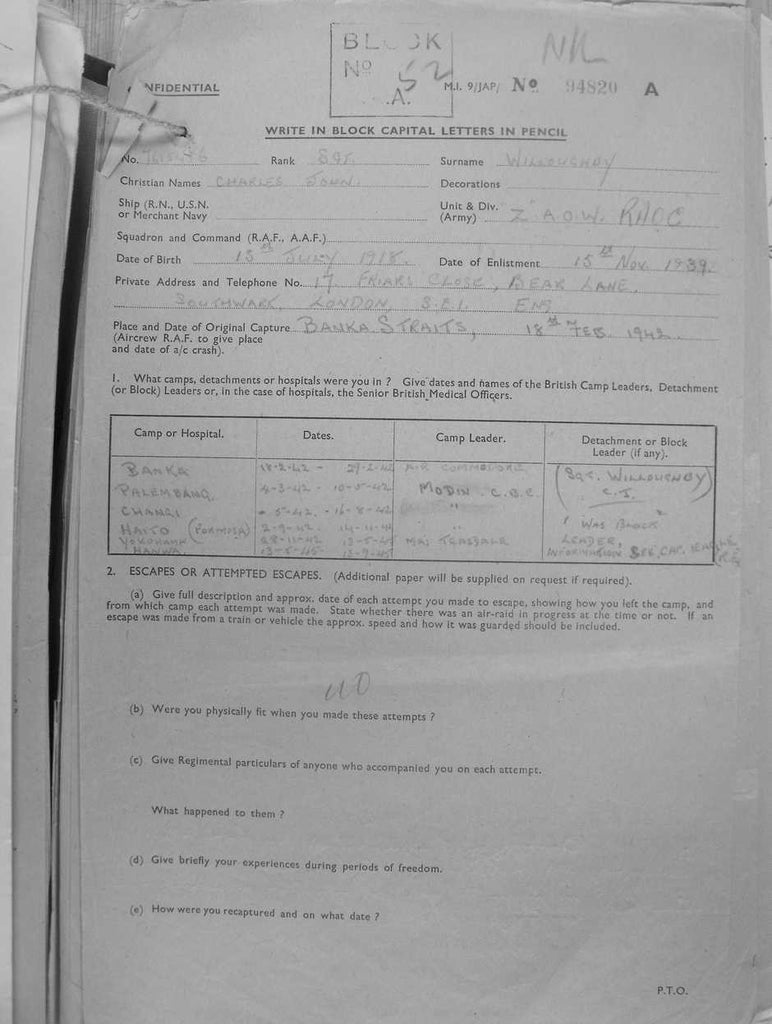 BL CK
No 52
.A.
NR
NFIDENTIAL
M.I. 9/JAP/ No 94820 A
WRITE IN BLOCK CAPITAL LETTERS IN PENCIL
No. Rank SGT. Surname WILLOUGHBY
Christian Names CHARLES JOHN. Decorations
Ship (R.N., U.S.N.
or Merchant Navy
Unit & Div. Z A.O.W. RAOC
(Army)
Squadron and Command (R.A.F., A.A.F.)
Date of Birth JULY 1918. Date of Enlistment 15th NOV. 1939.
Private Address and Telephone No. 17 FRIARS CLOSE, BEAR LANE,
SOUTHWARK, LONDON, S.E.1. ENG
Place and Date of Original Capture BANKA STRAITS, 18th FEB. 1942
(Aircrew R.A.F. to give place
and date of a/c crash).
1. What camps, detachments or hospitals were you in ? Give dates and names of the British Camp Leaders, Detachment
(or Block) Leaders or, in the case of hospitals, the Senior British Medical Officers.
Camp or Hospital. Dates. Camp Leader. Detachment or Block
Leader (if any).
BANKA 18-2-42 - 29-2-42 AIR COMMODORE (SGT. WILLOUGHBY
PALEMBANG. 4-3-42 - 10-5-42 MODIN. C.B.E. C.J.)
CHANGI -5-42. - 16-8-42 "
HAITO (FORMOSA) 2-9-42 14-11-4 " "I WAS BLOCK"
YOKOHAMA 28-11-42 13-5-4 MAJ. LEADER,
HANWA 13-5-45 13-9-45 INFORMATION SEE CAP.
2. ESCAPES OR ATTEMPTED ESCAPES. (Additional paper will be supplied on request if required).
(a) Give full description and approx. date of each attempt you made to escape, showing how you left the camp, and
from which camp each attempt was made. State whether there was an air-raid in progress at the time or not. If an
escape was made from a train or vehicle the approx. speed and how it was guarded should be included.
NO
(b) Were you physically fit when you made these attempts ?
(c) Give Regimental particulars of anyone who accompanied you on each attempt.
What happened to them ?
(d) Give briefly your experiences during periods of freedom.
(e) How were you recaptured and on what date ?
P.T.O.